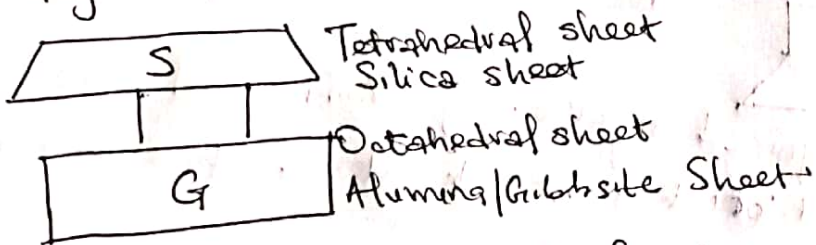 S
Tetrahedral sheet
Silica sheet
Octahedral sheet
G
Alumina/Gibbsite Sheet